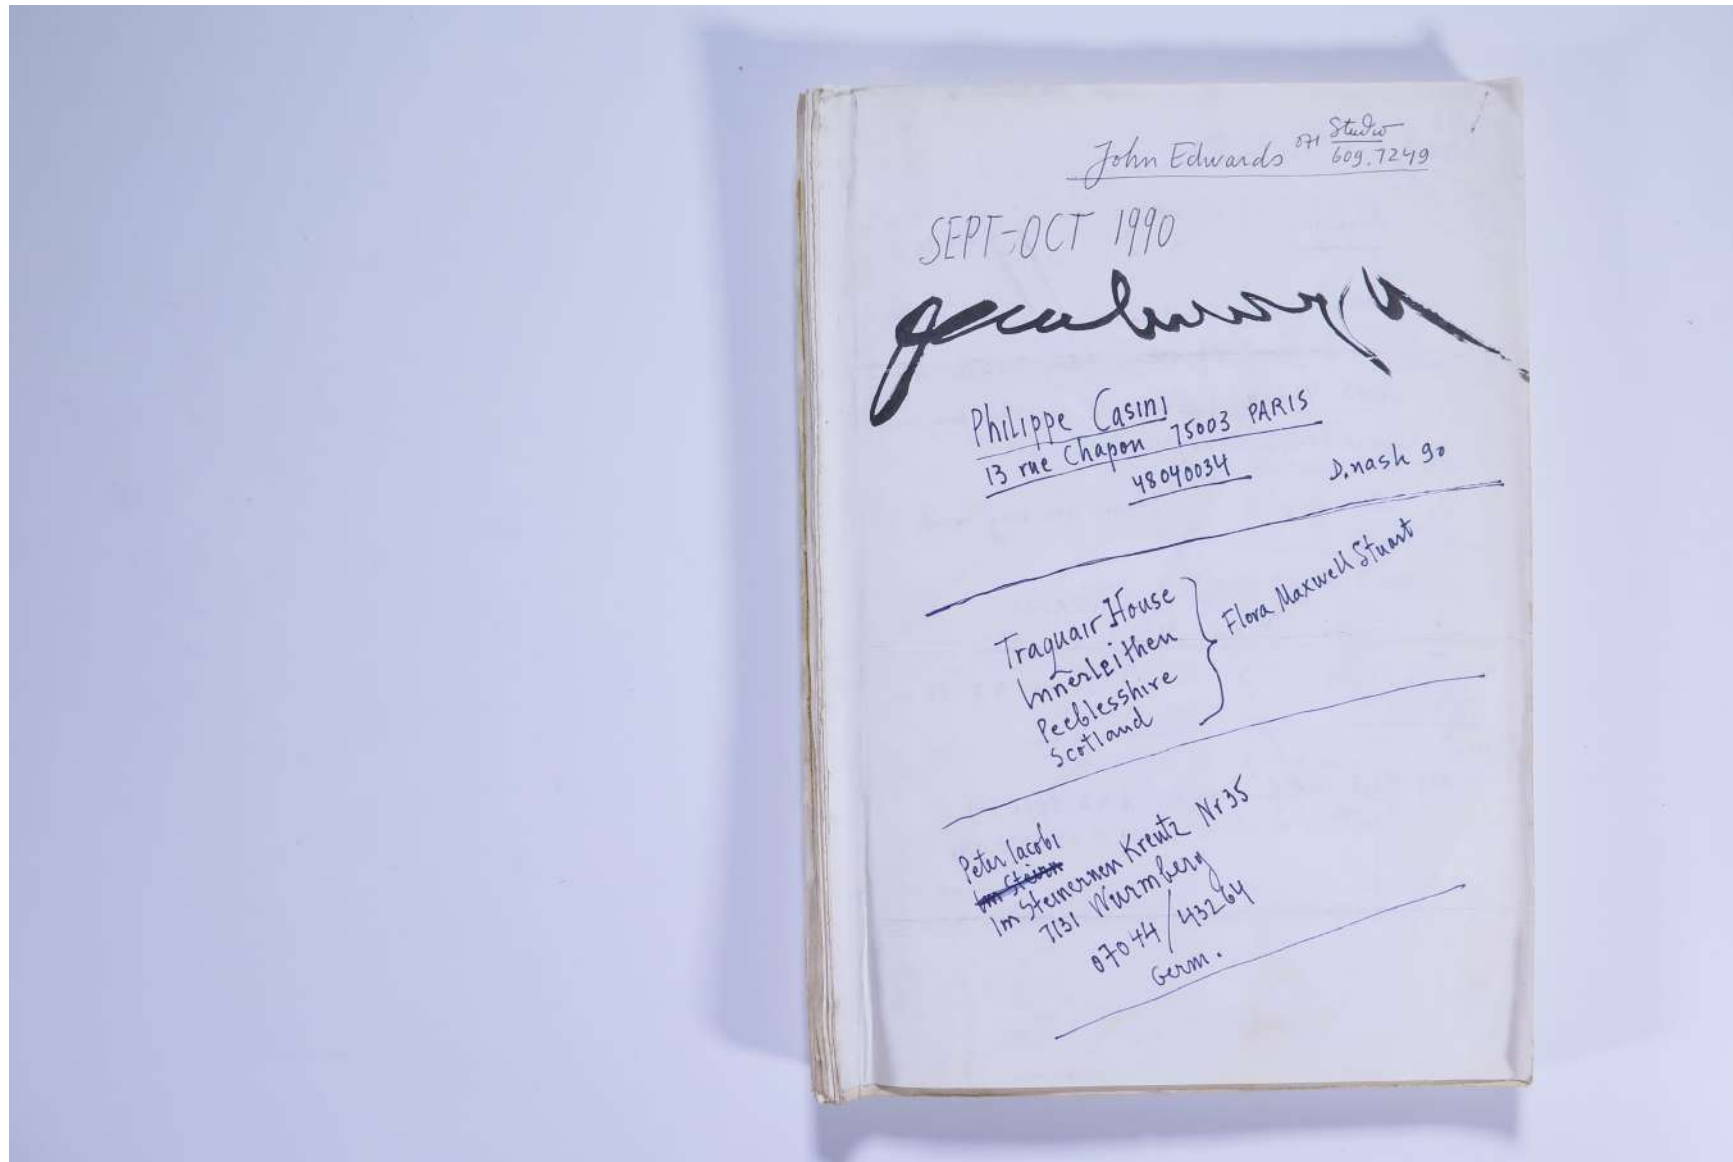 John Edwards 071 Studio 609.7249
SEPT-OCT 1990
Philippe Casini
13 rue Chapon 75003 PARIS
48040034
D. nash 90
Traquair House
Innerleithen
Peeblesshire
Scotland
Flora Maxwell Stuart
Peter Iacobi
Im Steinernen Kreutz Nr 35
7131 Wurmberg
07044/43264
Germ.